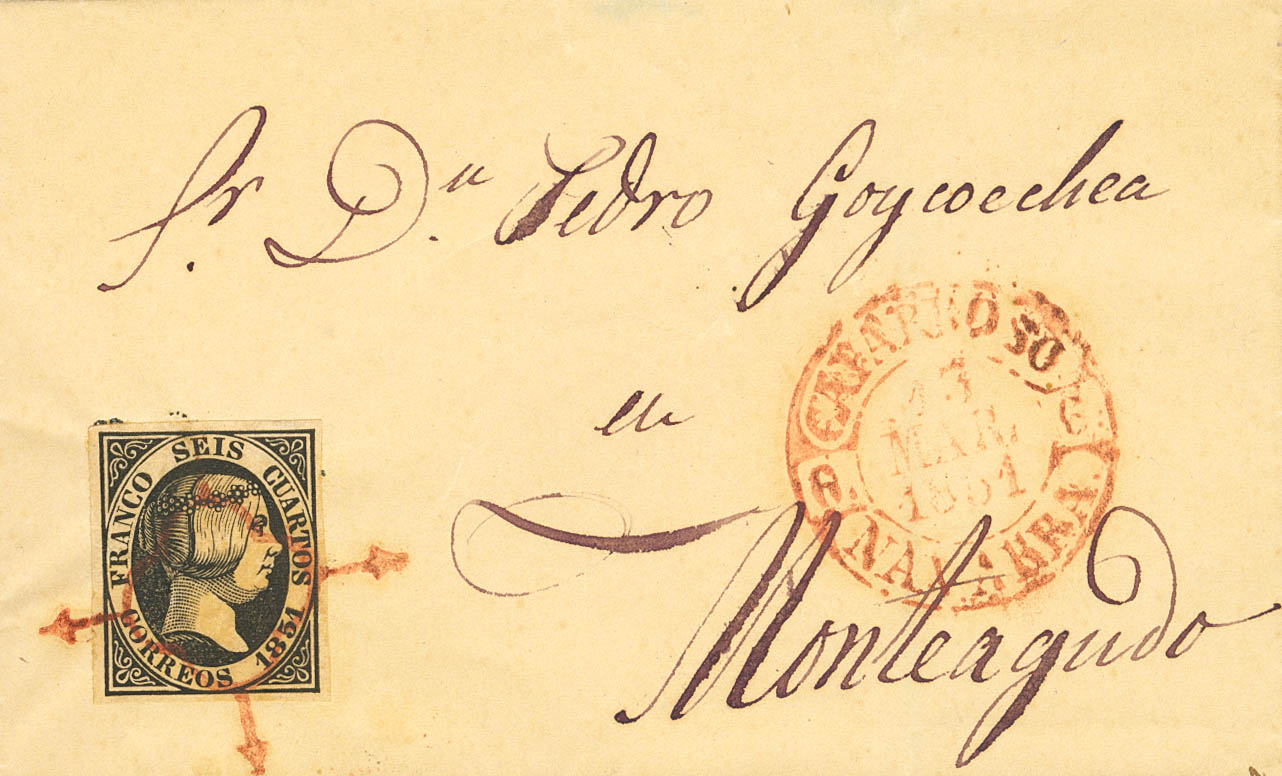 Sr. Dn. Pedro Goycoechea
en
Monteagudo
FRANCO SEIS CUARTOS
CORREOS 1851
13
MAR.
1851
NAVARRA.